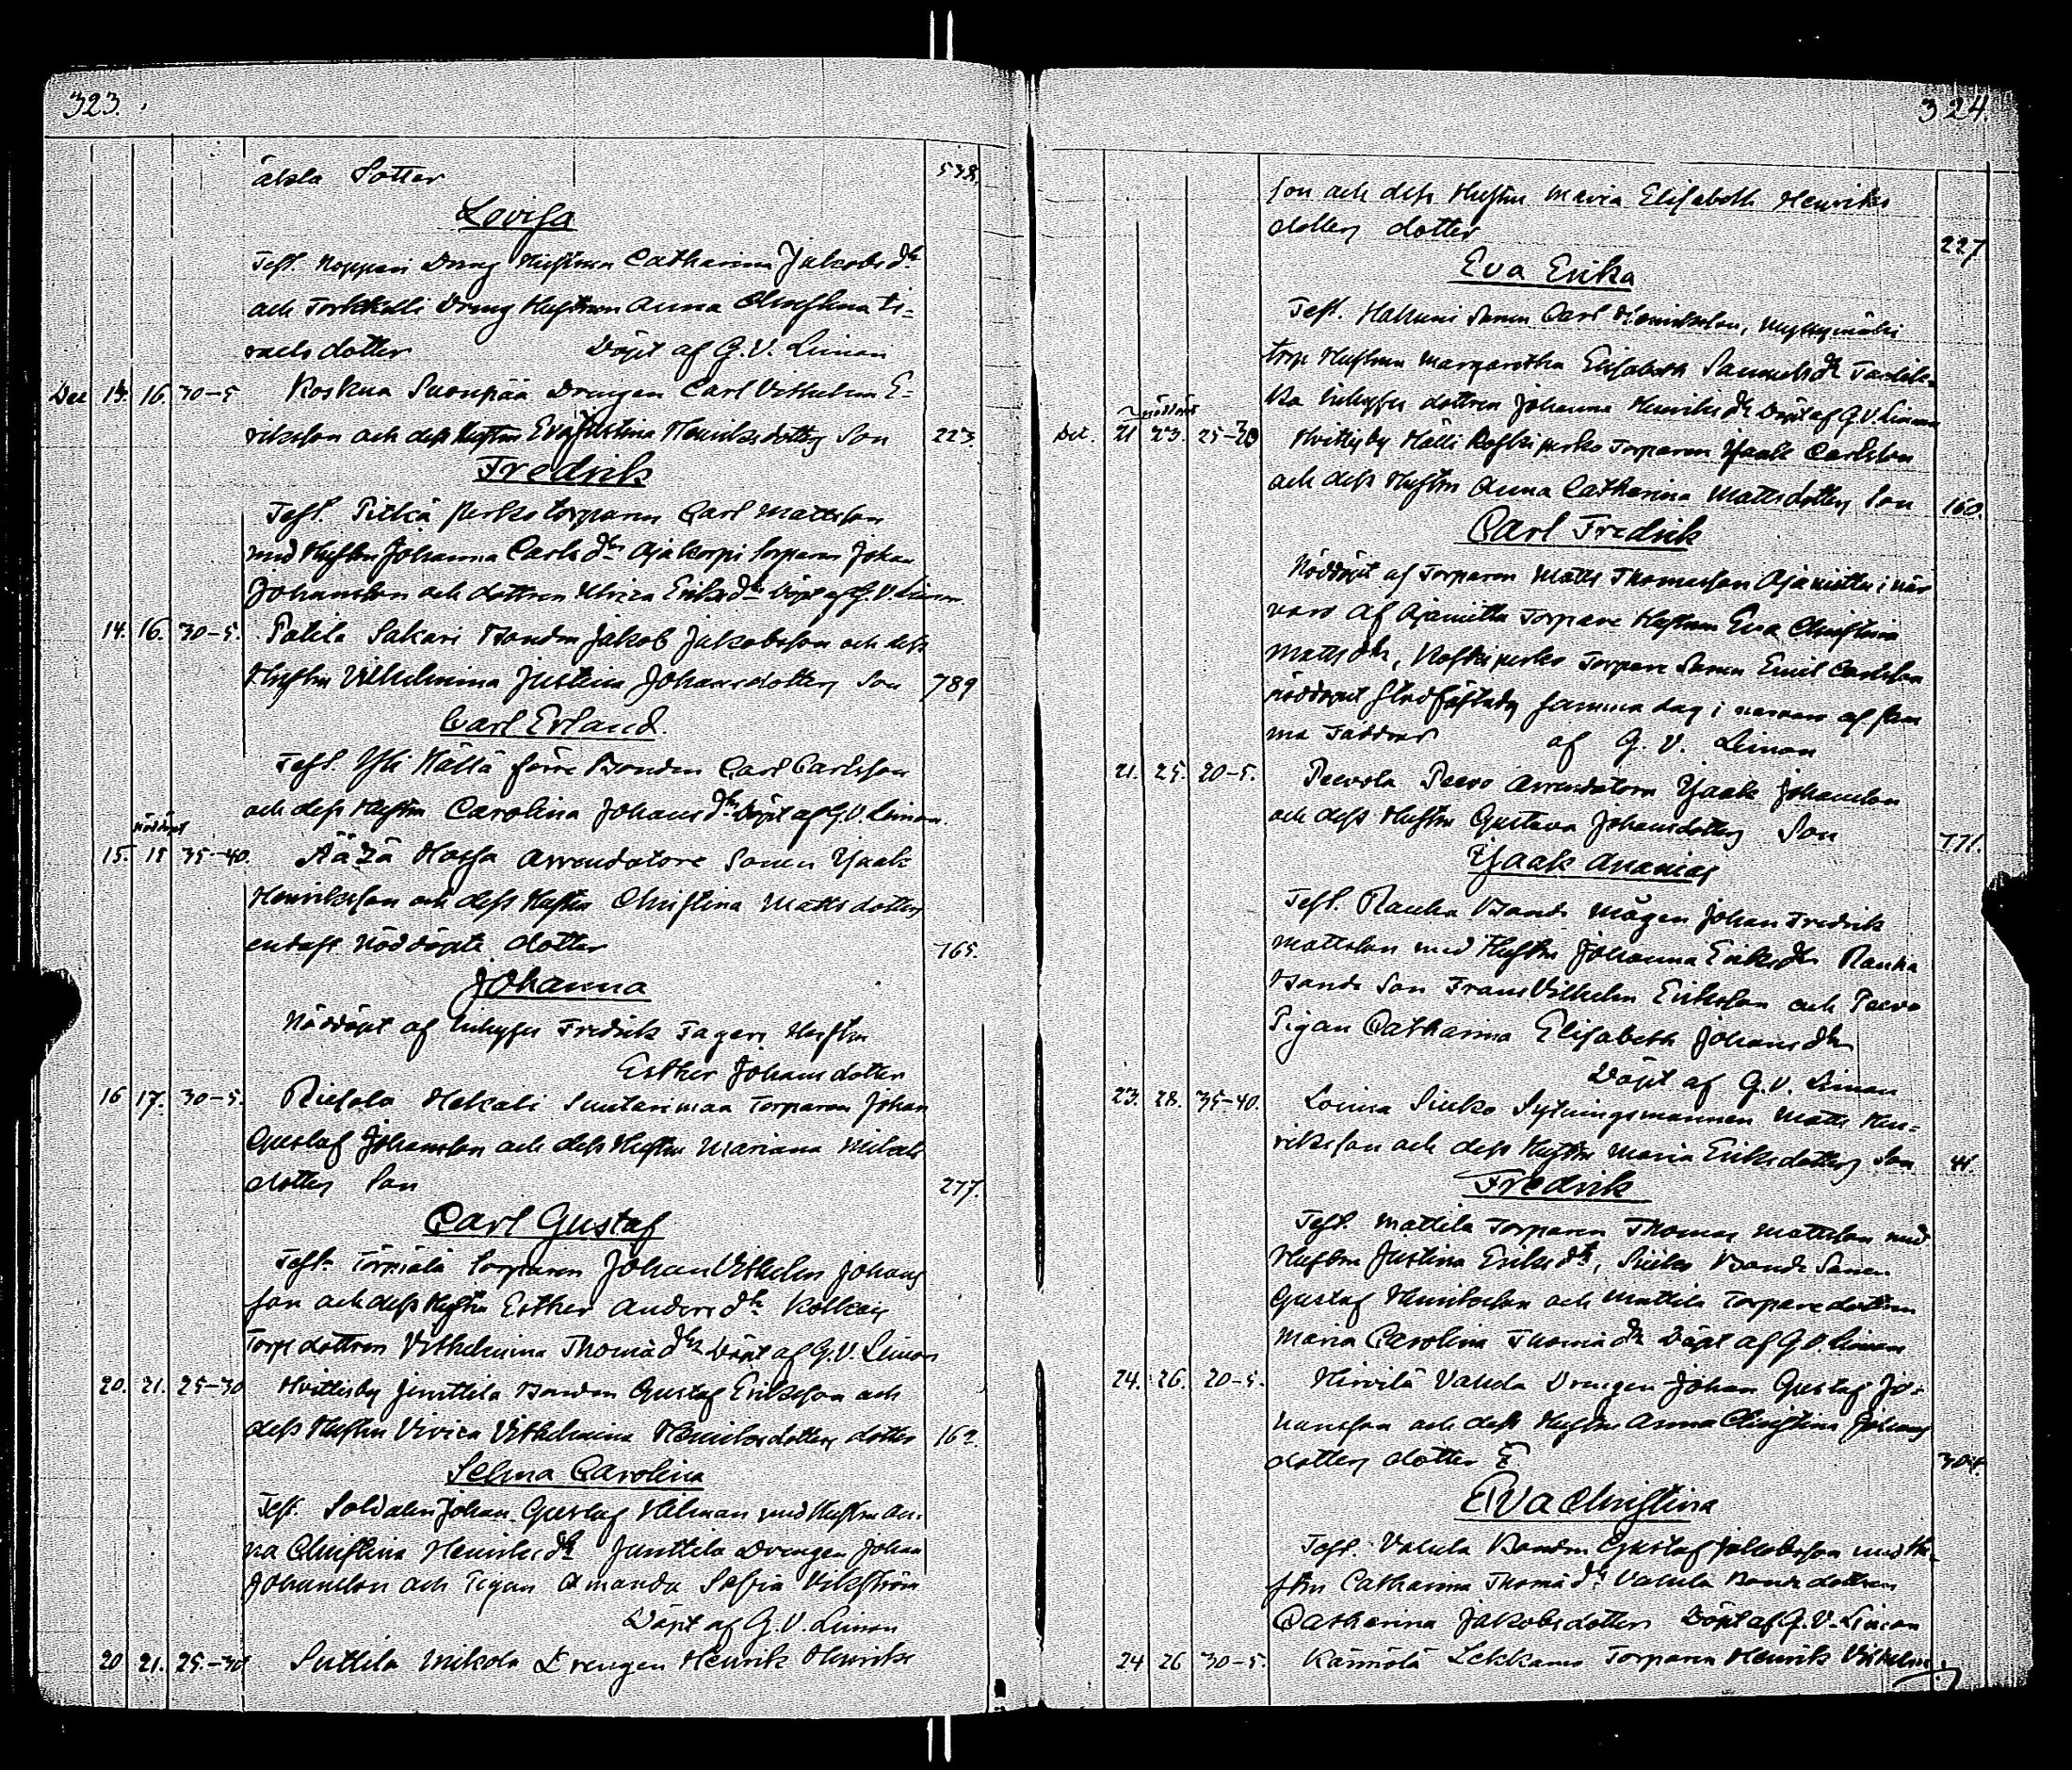 323.
äkta Dotter 538.
Lovisa
Test. Noppari Dreng Hustrun Catharina Jakobs dr
och Torkkelli Dreng Hustrun Anna Christina
dotter Döpt af G. V. Liman
Dec 13. 16. 30-5 Koskua Suonpää Drengen Carl Vilhelm E-
riksson och dess Hustru Eva Justina Henriksdotters Son 223.
Fredrik
Test. Pitkä perko torparen Carl Mattsson
med Hustru Johanna Carls dr Ajakorpi torparen Johan
Johansson och dottren Ulrica Eriks dr Döpt af G. V. Liman.
14. 16. 30-5. Potila Sakari Bonden Jakob Jakobsson och dess
Hustru Vilhelmina Justina Johansdotters Son 789
Carl Erland.
Test. Yli Källä förre Bonden Carl Carlsson
och dess Hustru Carolina Johans dr Döpt af G. V. Liman.
nöddöpt
15. 15 35-40. Äätä Hossa Arrendatore Sonen Isaak
Henriksson och dess Hustru Christina Matts dotters
endast nöddöpte dotter 765.
Johanna
Nöddöpt af Inhyses Fredrik Fagers Hustru
Esther Johansdotter
16 17. 30-5. Riesola Hakali Suntarinmaa Torparen Johan
Gustaf Johansson och dess Hustru Mariana Mikels
dotters Son 277.
Carl Gustaf
Test. Törmälä torparen Johan Vilhelm Johans
son och dess Hustru Esther Anders dr
Torp dottren Vilhelmina Thomä dr Döpt af G. V. Liman
20. 21. 25-30 Hvittisby Junttila Bonden Gustaf Eriksson och
dess Hustru Vivica Vilhelmina Henriksdotters dotter 162.
Selma Carolina
Test. Soldaten Johan Gustaf Hilman med Hustru An-
na Christina Henriks dr Junttila Drengen Johan
Johansson och Pigan Amanda Sofia Vikström
Döpt af G. V. Liman
20 21. 25.-30 Suttila Mikola Drengen Henrik Henriks
324.
son och dess Hustru Maria Elisabeth Henriks
dotters dotter 227
Eva Erika
Test. Sonen Carl Henriksson,
torp Hustrun Margaretha Elisabeth Samuels dr
Inhyses dottren Johanna Henriks dr Döpt af G. V. Liman
nöddöpt
Dec. 21 23. 25-30 Hvittisby Hälli Koski perko Torparen Isaak Carlsson
och dess Hustru Anna Catharina Mattsdotters Son 160.
Carl Fredrik
Nöddöpt af Torparen Matts Thomasson Ajaniittu i när
varo af Ajaniittu Torpare Hustrun Eva Christina
Matts dr, Koski perko Torpare Sonen Emil Carlsson
nöddopet stadfästadt samma dag i närvaro af sam
ma Faddrar af G. V. Liman
21. 25. 20-5. Peevola Peevo Arrendatorn Isaak Johansson
och dess Hustru Gustava Johansdotters Son 771.
Isaak Ananias
Test. Rauha Bonde Mågen Johan Fredrik
Mattsson med Hustru Johanna Eriks dr Rauha
Bonde Son Frans Vilhelm Eriksson och Peevo
Pigan Catharina Elisabeth Johans dr
Döpt af G. V. Liman
23. 28. 35-40. Loima Siuko Sytningsmannen Matts Hen-
riksson och dess Hustru Maria Eriksdotters Son 41.
Fredrik
Test. Mattila Torparen Thomas Mattsson med
Hustru Justina Eriks dr, Siuko Bonde Sonen
Gustaf Henriksson och Mattila Torpare dottren
Maria Carolina Thomä dr Döpt af G V. Liman
24. 26. 20-5. Hirvilä Vahula Drengen Johan Gustaf Jo-
hansson och dess Hustru Anna Christina Johans
dotters dotter 304.
Eva Christina
Test. Vahula Bonden Gustaf Jakobsson med Hu-
stru Catharina Thomä dr Vahula Bonde dottren
Catharina Jakobsdotter Döpt af G. V. Liman
24 26 30-5. Kärnölä Lekkamo Torparen Henrik Vilhelm